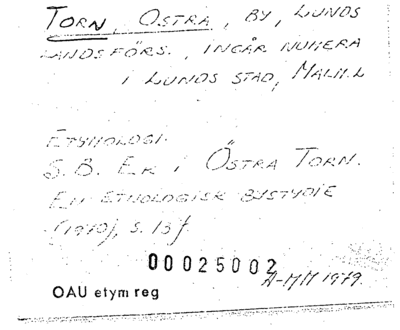 TORN, ÖSTRA, BY, LUNDS
LANDSFÖRS., INGÅR NUMERA
I LUNDS STAD, MALM.L
ETYMOLOGI.
S.B. EK I ÖSTRA TORN.
EN ETNOLOGISK BYSTUDIE
(1970), S. 13 f.
00025002
A-MM 1979.
OAU etym reg